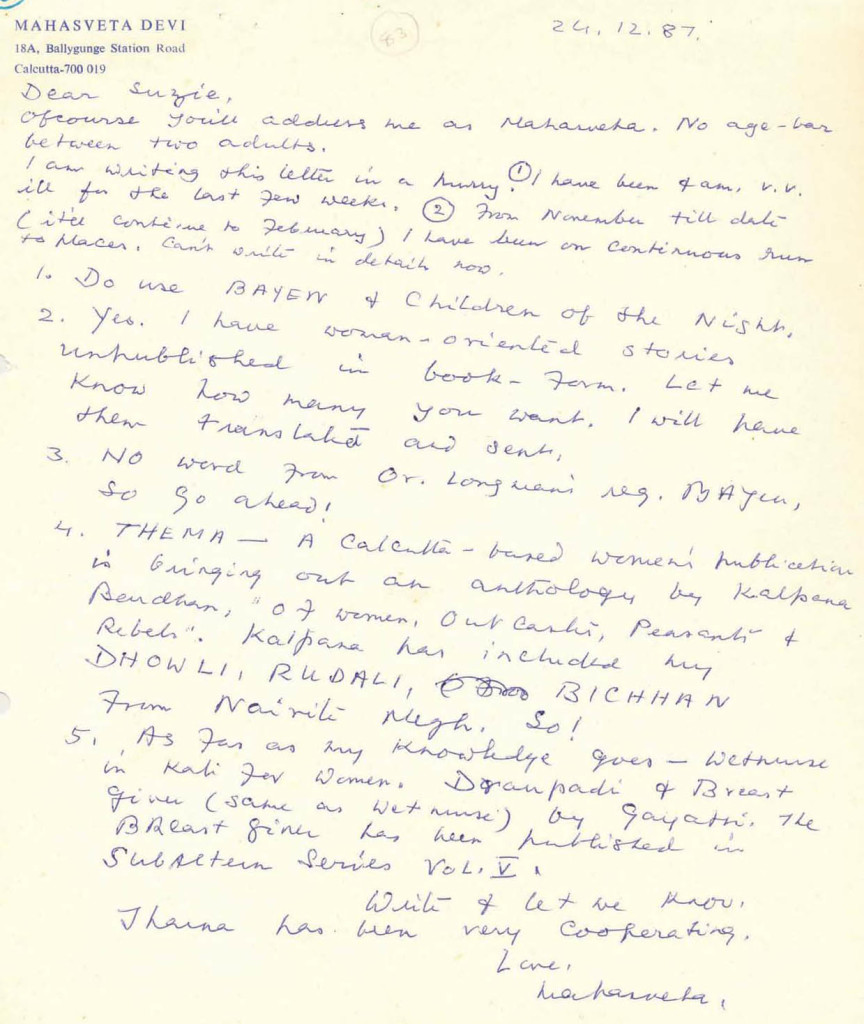 MAHASVETA DEVI
18A, Ballygunge Station Road
Calcutta-700 019
83
24.12.87.
Dear Suzie,
Ofcourse you'll address me as Mahasveta. No age-bar
between two adults.
I am writing this letter in a hurry. ① I have been & am, v.v.
ill for the last few weeks. ② From November till date
(it'll continue to February) I have been on continuous run
to places. Can't write in details now.
1. Do use BAYEN & Children of the Night.
2. Yes. I have woman-oriented stories
unpublished in book-form. Let me
know how many you want. I will have
them translated and sent.
3. No word from Or. Longman's reg. BAYEN,
So go ahead!
4. THEMA — A Calcutta-based women's publication
is bringing out an anthology by Kalpana
Bardhan, "Of women, Outcastes, Peasants &
Rebels". Kalpana has included my
DHOWLI, RUDALI, BICHHAN
from Nairite Megh. So!
5. As far as my knowledge goes — Wetnurse
in Kali for Women. Draupadi & Breast
Giver (same as wet nurse) by Gayatri. The
BReast giver has been published in
Subaltern Series Vol. V.
Write & let me know.
has been very cooperating.
Love,
Mahasveta,